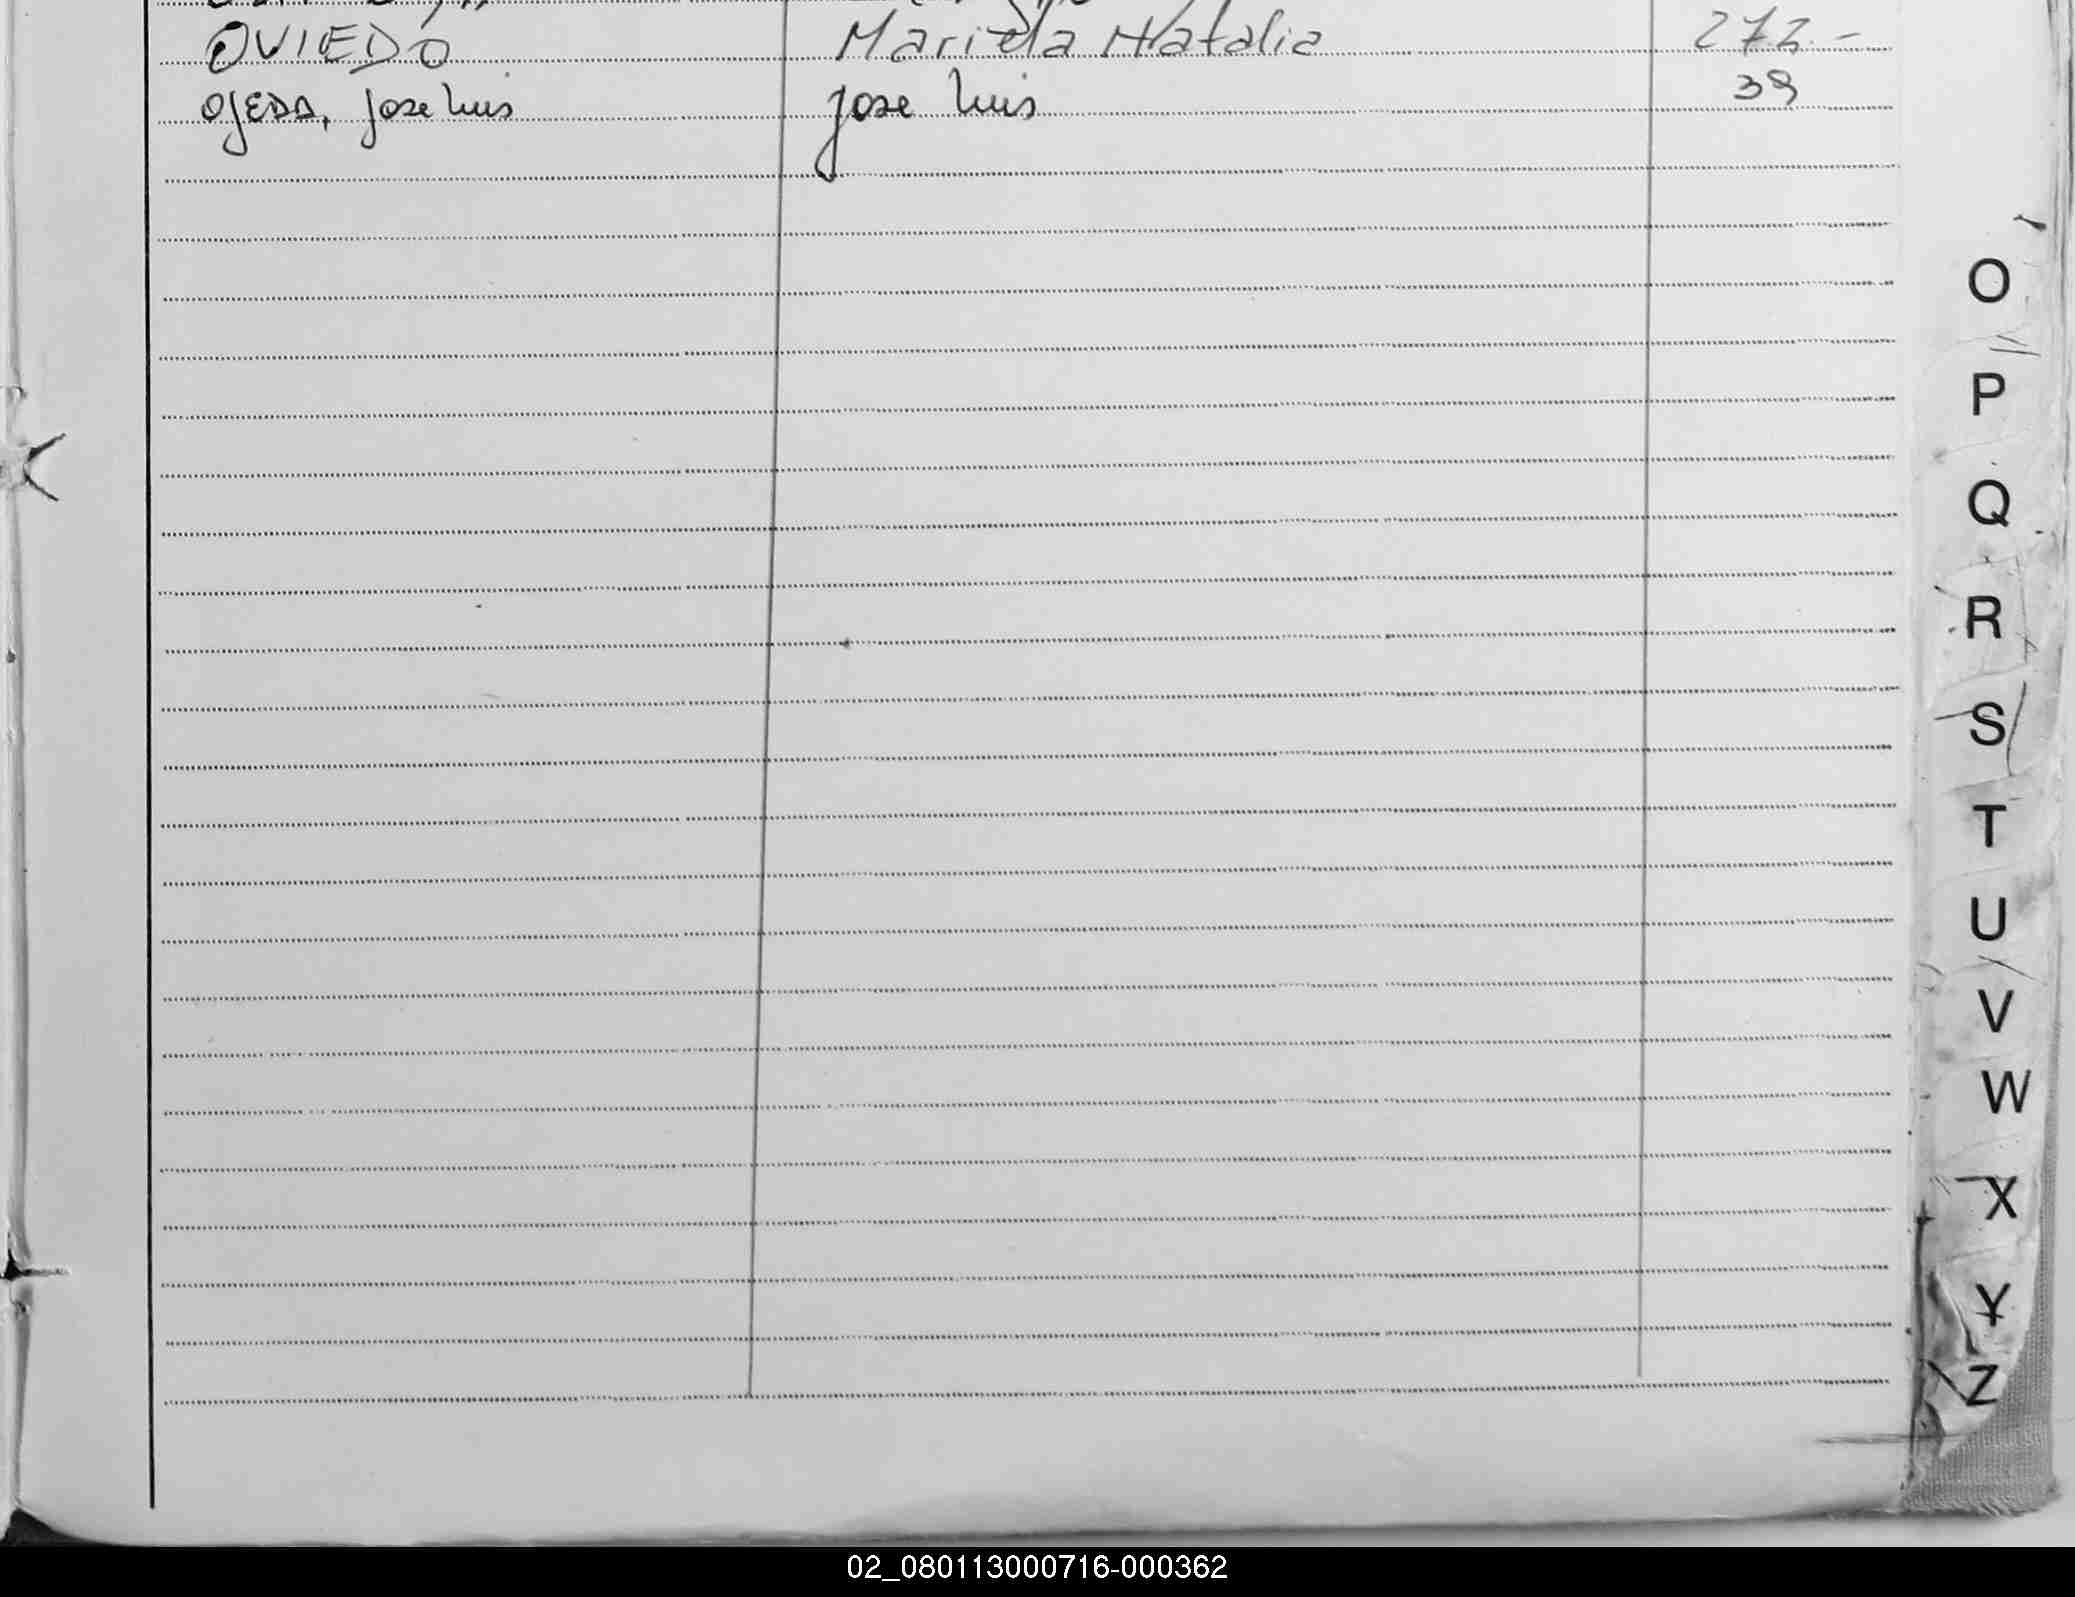 OVIEDO Mariela Natalia 272.-
OJEDA, Jose Luis Jose Luis 39
O
P
Q
R
S
T
U
V
W
X
Y
Z
02_080113000716-000362